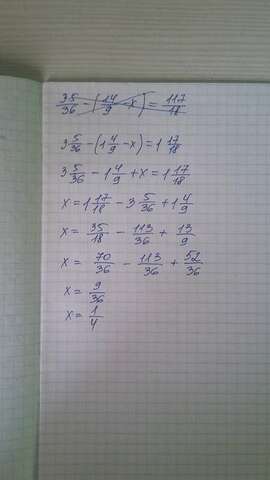 35/36 - (14/9 - x) = 117/18
3 5/36 - (1 4/9 - x) = 1 17/18
3 5/36 - 1 4/9 + x = 1 17/18
x = 1 17/18 - 3 5/36 + 1 4/9
x = 35/18 - 113/36 + 13/9
x = 70/36 - 113/36 + 52/36
x = 9/36
x = 1/4